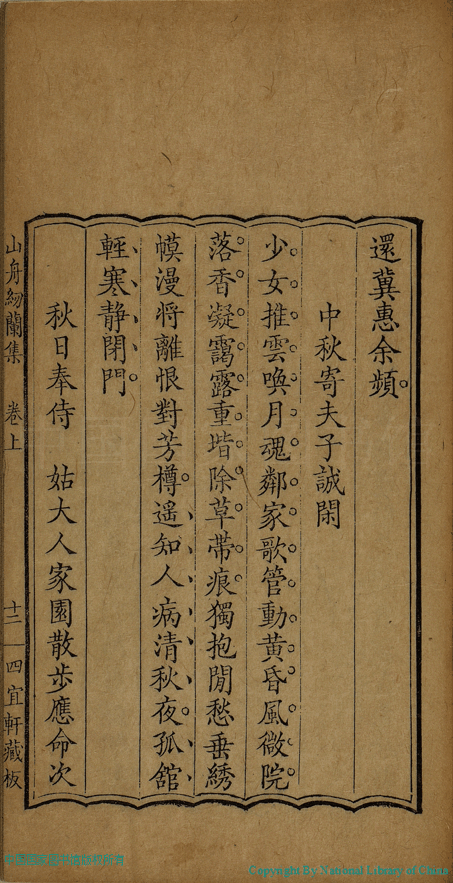 還冀惠余頻
中秋寄夫子誠閑
少女推雲喚月魂鄰家歌管動黃昏風微院
落香凝靄露重堦除草帶痕獨抱閒愁垂綉
幙漫將離恨對芳樽遥知人病清秋夜孤舘
輕寒静閉門
秋日奉侍 姑大人家園散步應命次
山舟紉蘭集 卷上 十二 四宜軒藏板
Copyright By National Library of China